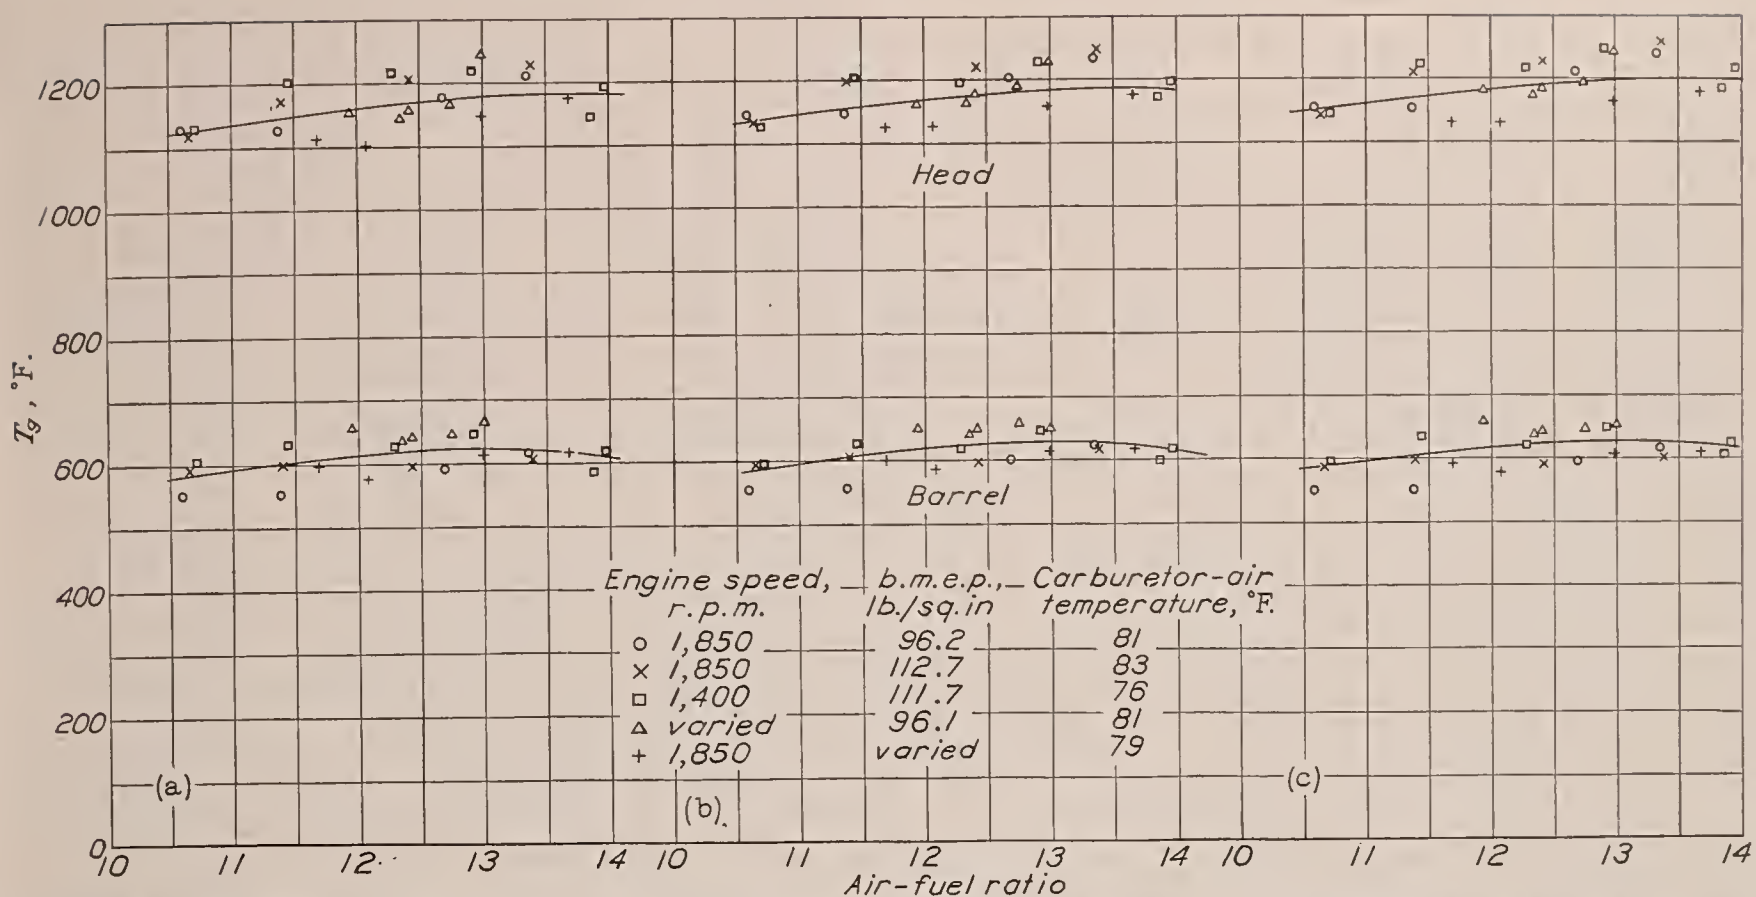 1200
1000
800
600
400
200
0
Tg, °F.
Head
Barrel
Engine speed, r.p.m. b.m.e.p., lb./sq.in Carburetor-air temperature, °F.
○ 1,850 96.2 81
× 1,850 112.7 83
□ 1,400 111.7 76
△ varied 96.1 81
+ 1,850 varied 79
(a)
(b).
(c)
10 11 12 13 14 10 11 12 13 10 11 12 13 14
Air-fuel ratio